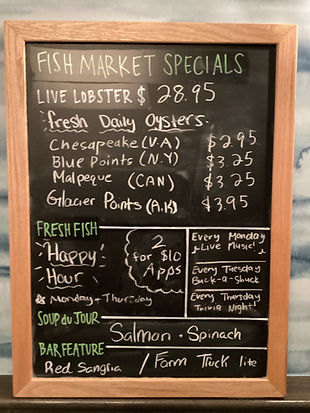 FISH MARKET SPECIALS
LIVE LOBSTER $ 28.95
fresh Daily Oysters
Chesapeake (V.A) $2.95
Blue Points (N.Y) $3.25
Malpeque (CAN) $3.25
Glacier Points (A.K) $3.95
FRESH FISH
Happy
Hour
& Monday - Thursday
2
for $10
Apps
Every Monday
Live Music!
Every Tuesday
Buck-a-Shuck
Every Thursday
Trivia Night!
SOUP du JOUR
Salmon + Spinach
BAR FEATURE
Red Sangria / Farm Truck lite